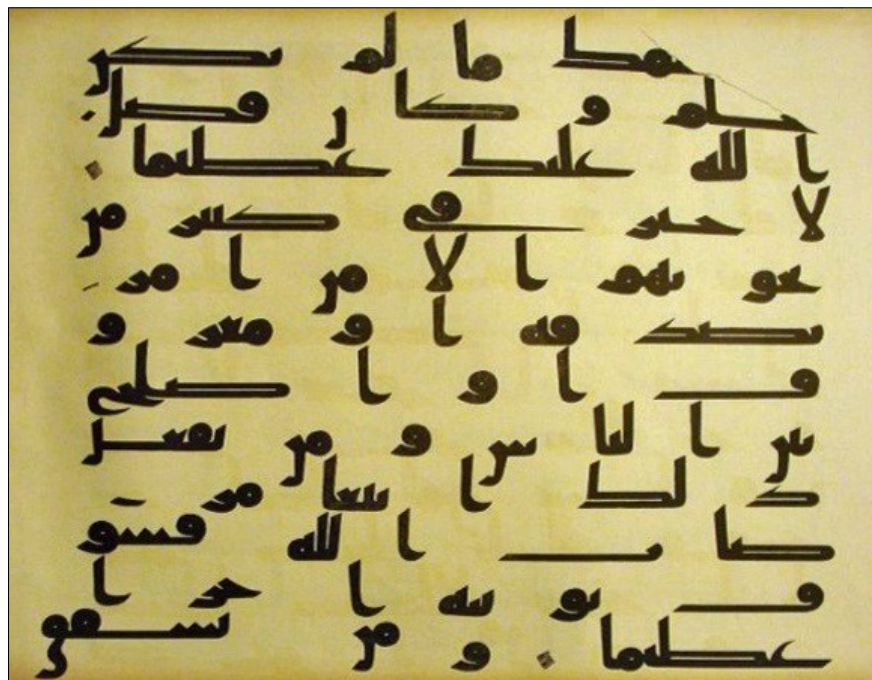 علمك ما لم تكن
تعلم و كان فضل
الله عليك عظيما
لا خير في كثير من
نجو يهم الا من امر
بصدقه او معر و
ف او اصلح
بين الناس و من يفعل
ذلك ابتغا مر
ضات الله فسو
ف نو تيه اجر ا
عظيما و من يشقق